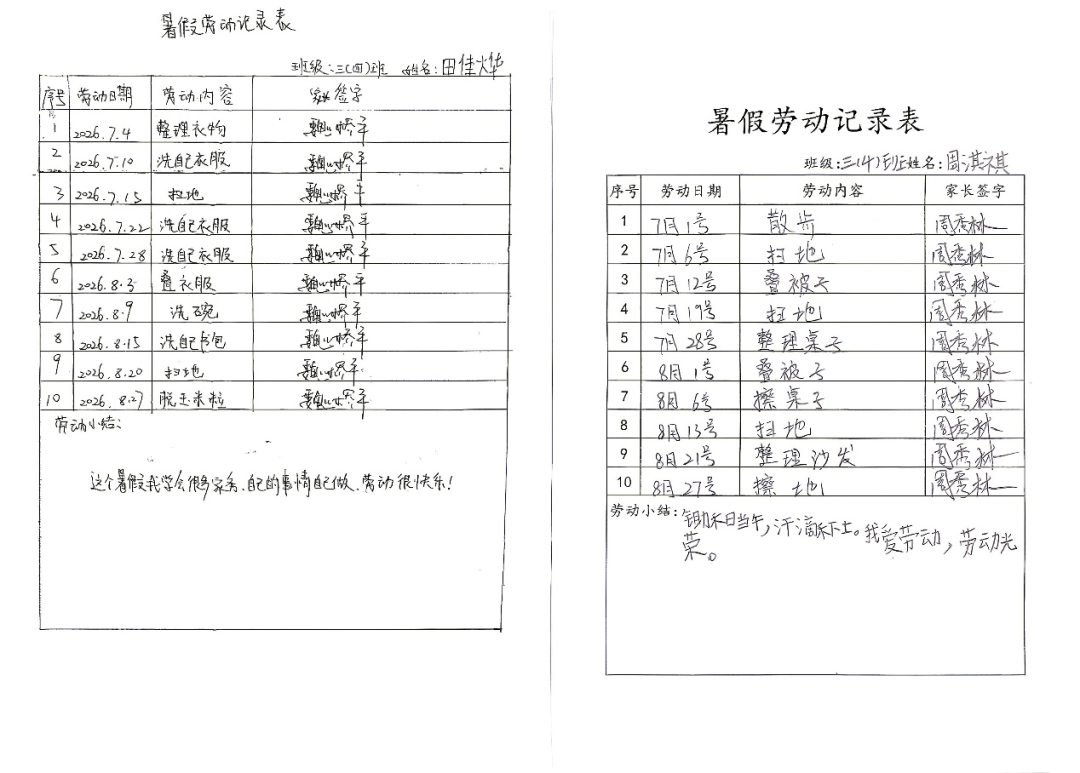 暑假劳动记录表
班级:三(四)班 姓名:田佳烨
序号 劳动日期 劳动内容 家长签字
1 2026.7.4 整理衣物
2 2026.7.10 洗自己衣服
3 2026.7.15 扫地
4 2026.7.22 洗自己衣服
5 2026.7.28 洗自己衣服
6 2026.8.3 叠衣服
7 2026.8.9 洗碗
8 2026.8.15 洗自己书包
9 2026.8.20 扫地
10 2026.8.27 脱玉米粒
劳动小结:
这个暑假我学会很多家务、自己的事情自己做、劳动很快乐!
暑假劳动记录表
班级:三(4)班 姓名:周淇祺
序号 劳动日期 劳动内容 家长签字
1 7月1号 散步 周秀林
2 7月6号 扫地 周秀林
3 7月12号 叠被子 周秀林
4 7月19号 扫地 周秀林
5 7月28号 整理桌子 周秀林
6 8月1号 叠被子 周秀林
7 8月6号 擦桌子 周秀林
8 8月13号 扫地 周秀林
9 8月21号 整理沙发 周秀林
10 8月27号 擦地 周秀林
劳动小结:锄禾日当午,汗滴禾下土。我爱劳动,劳动光
荣。